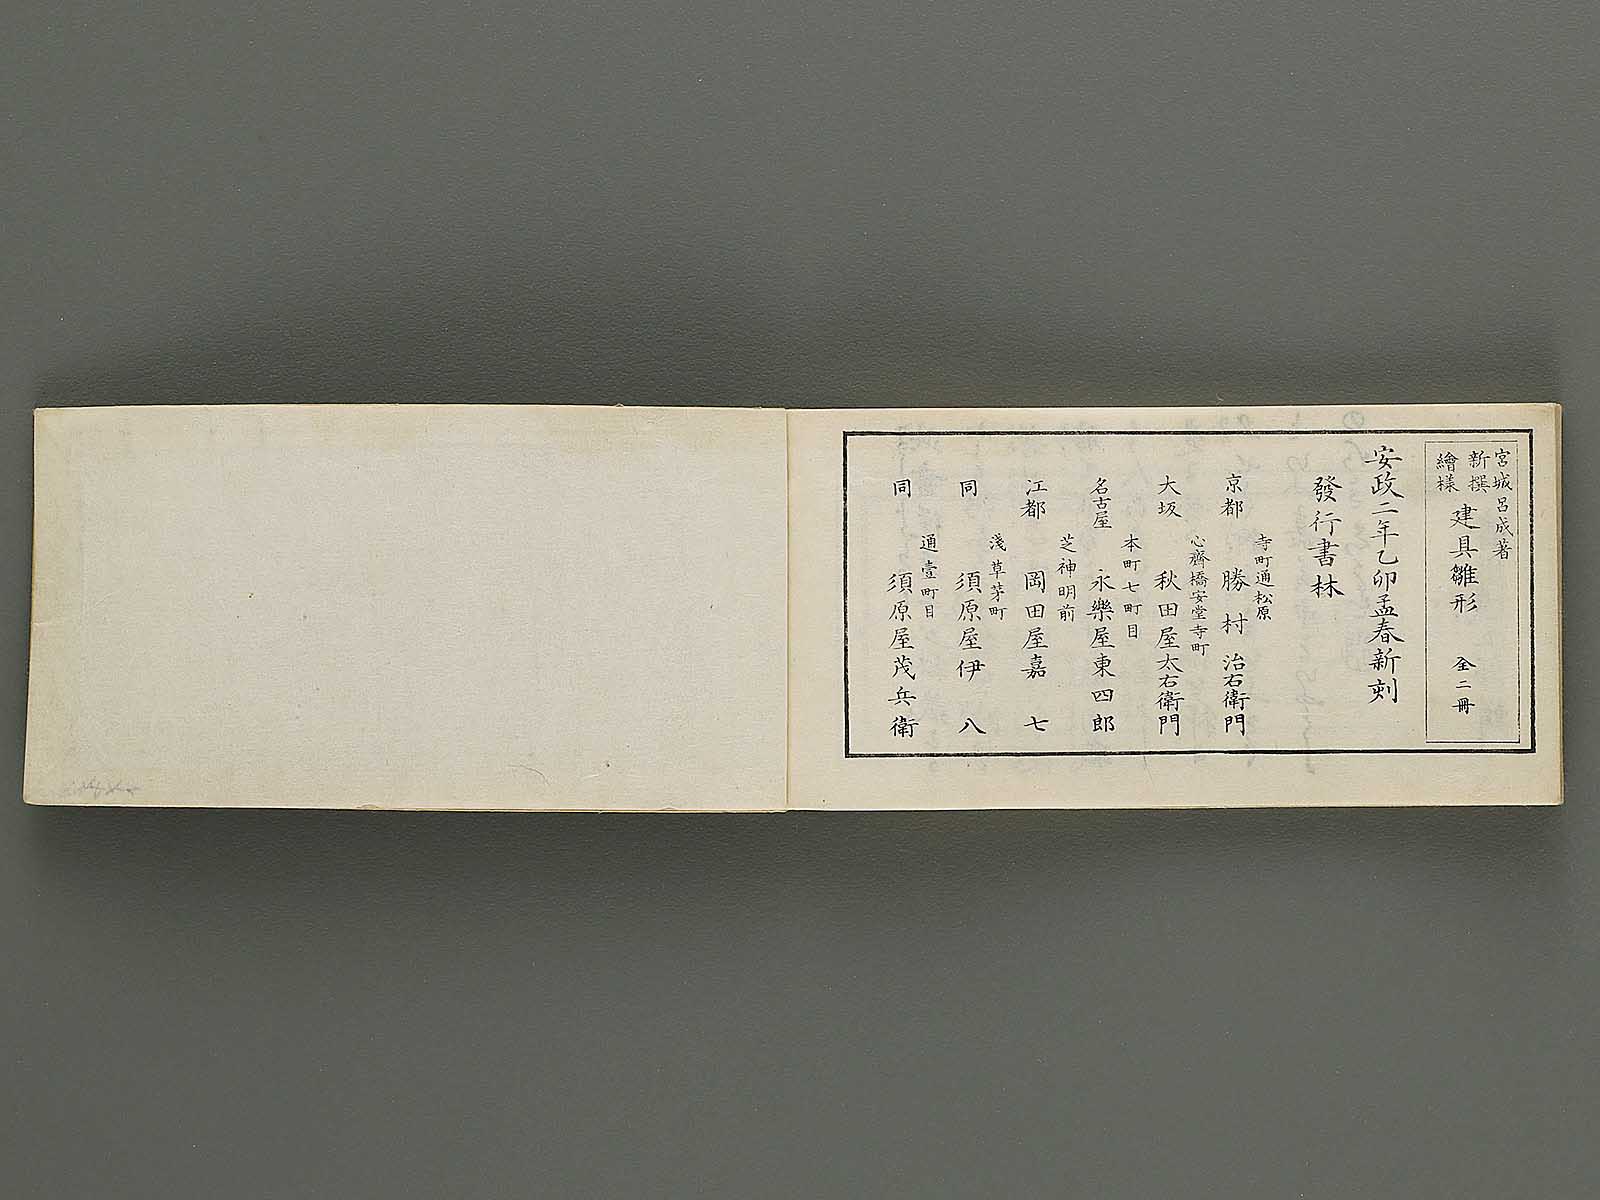 宮城呂成著
新撰
繪様
建具雛形 全二冊
安政二年乙卯孟春新刻
發行書林
寺町通松原
京都 勝村治右衛門
心齋橋安堂寺町
大坂 秋田屋太右衛門
本町七町目
名古屋 永樂屋東四郎
芝神明前
江都 岡田屋嘉七
淺草茅町
同 須原屋伊八
通壹町目
同 須原屋茂兵衛